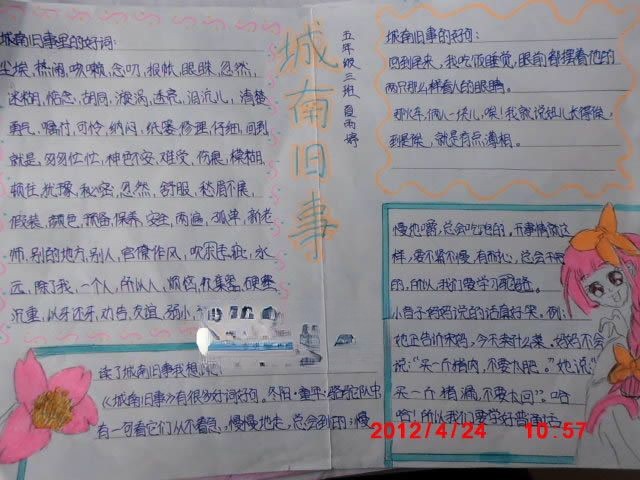 城南旧事里的好词:
尘埃,热闹,咳嗽,念叨,报帐,眼睐,忽然,
迷糊,惦念,胡同,漩涡,透亮,泪流儿,清楚
勇气,嘱付,可怜,纳闷,纸婆,修理,仔细,回到
就是,匆匆忙忙,神色不安,难受,伤痕,模糊,
顿住,犹豫,秘密,忽然,舒服,愁眉不展,
假装,颜色,预备,保养,安全,肉遍,孤单,新老
师,别的地方,别人,官僚作风,吹东西,永
远,除了我,一个人,所以人,烦恼,杜集娶,硬要
沉重,以牙还牙,劝告,友谊,弱小,
城南旧事
五年级三班 夏雨婷
城南旧事的好句:
回到屋来,我吃饭睡觉,眼前都摆着他的
两只那么样看人的眼睛。
那火车,俩人一块儿,唉!我就说妞儿长得像
到是像,就是有点薄相。
读了城南旧事我想
《城南旧事》有很多好词好句。冬阳·童年·骆驼队中
有一句看它们从不着急,慢慢地走,总会到的;慢
慢地嚼,总会吃饱的。干事情就这
样,要不紧不慢,有耐心,总会干完
的,所以,我们要学习骆驼。
小音子妈妈说的话真好笑。例:
她正告诉宋妈,今天来什么菜,妈妈不会
说:“买一斤猪肉,不要太肥。”她说:“
买一斤猪漏,不要太回”。哈
哈!所以我们要学好普通话
2012/4/24 10:57